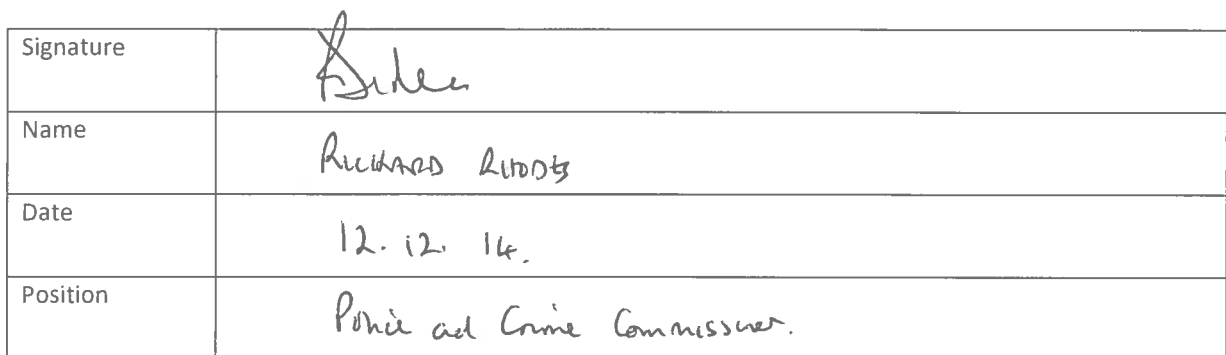 Signature
Name RICHARD RHODES
Date 12. 12. 14.
Position Police and Crime Commissioner.